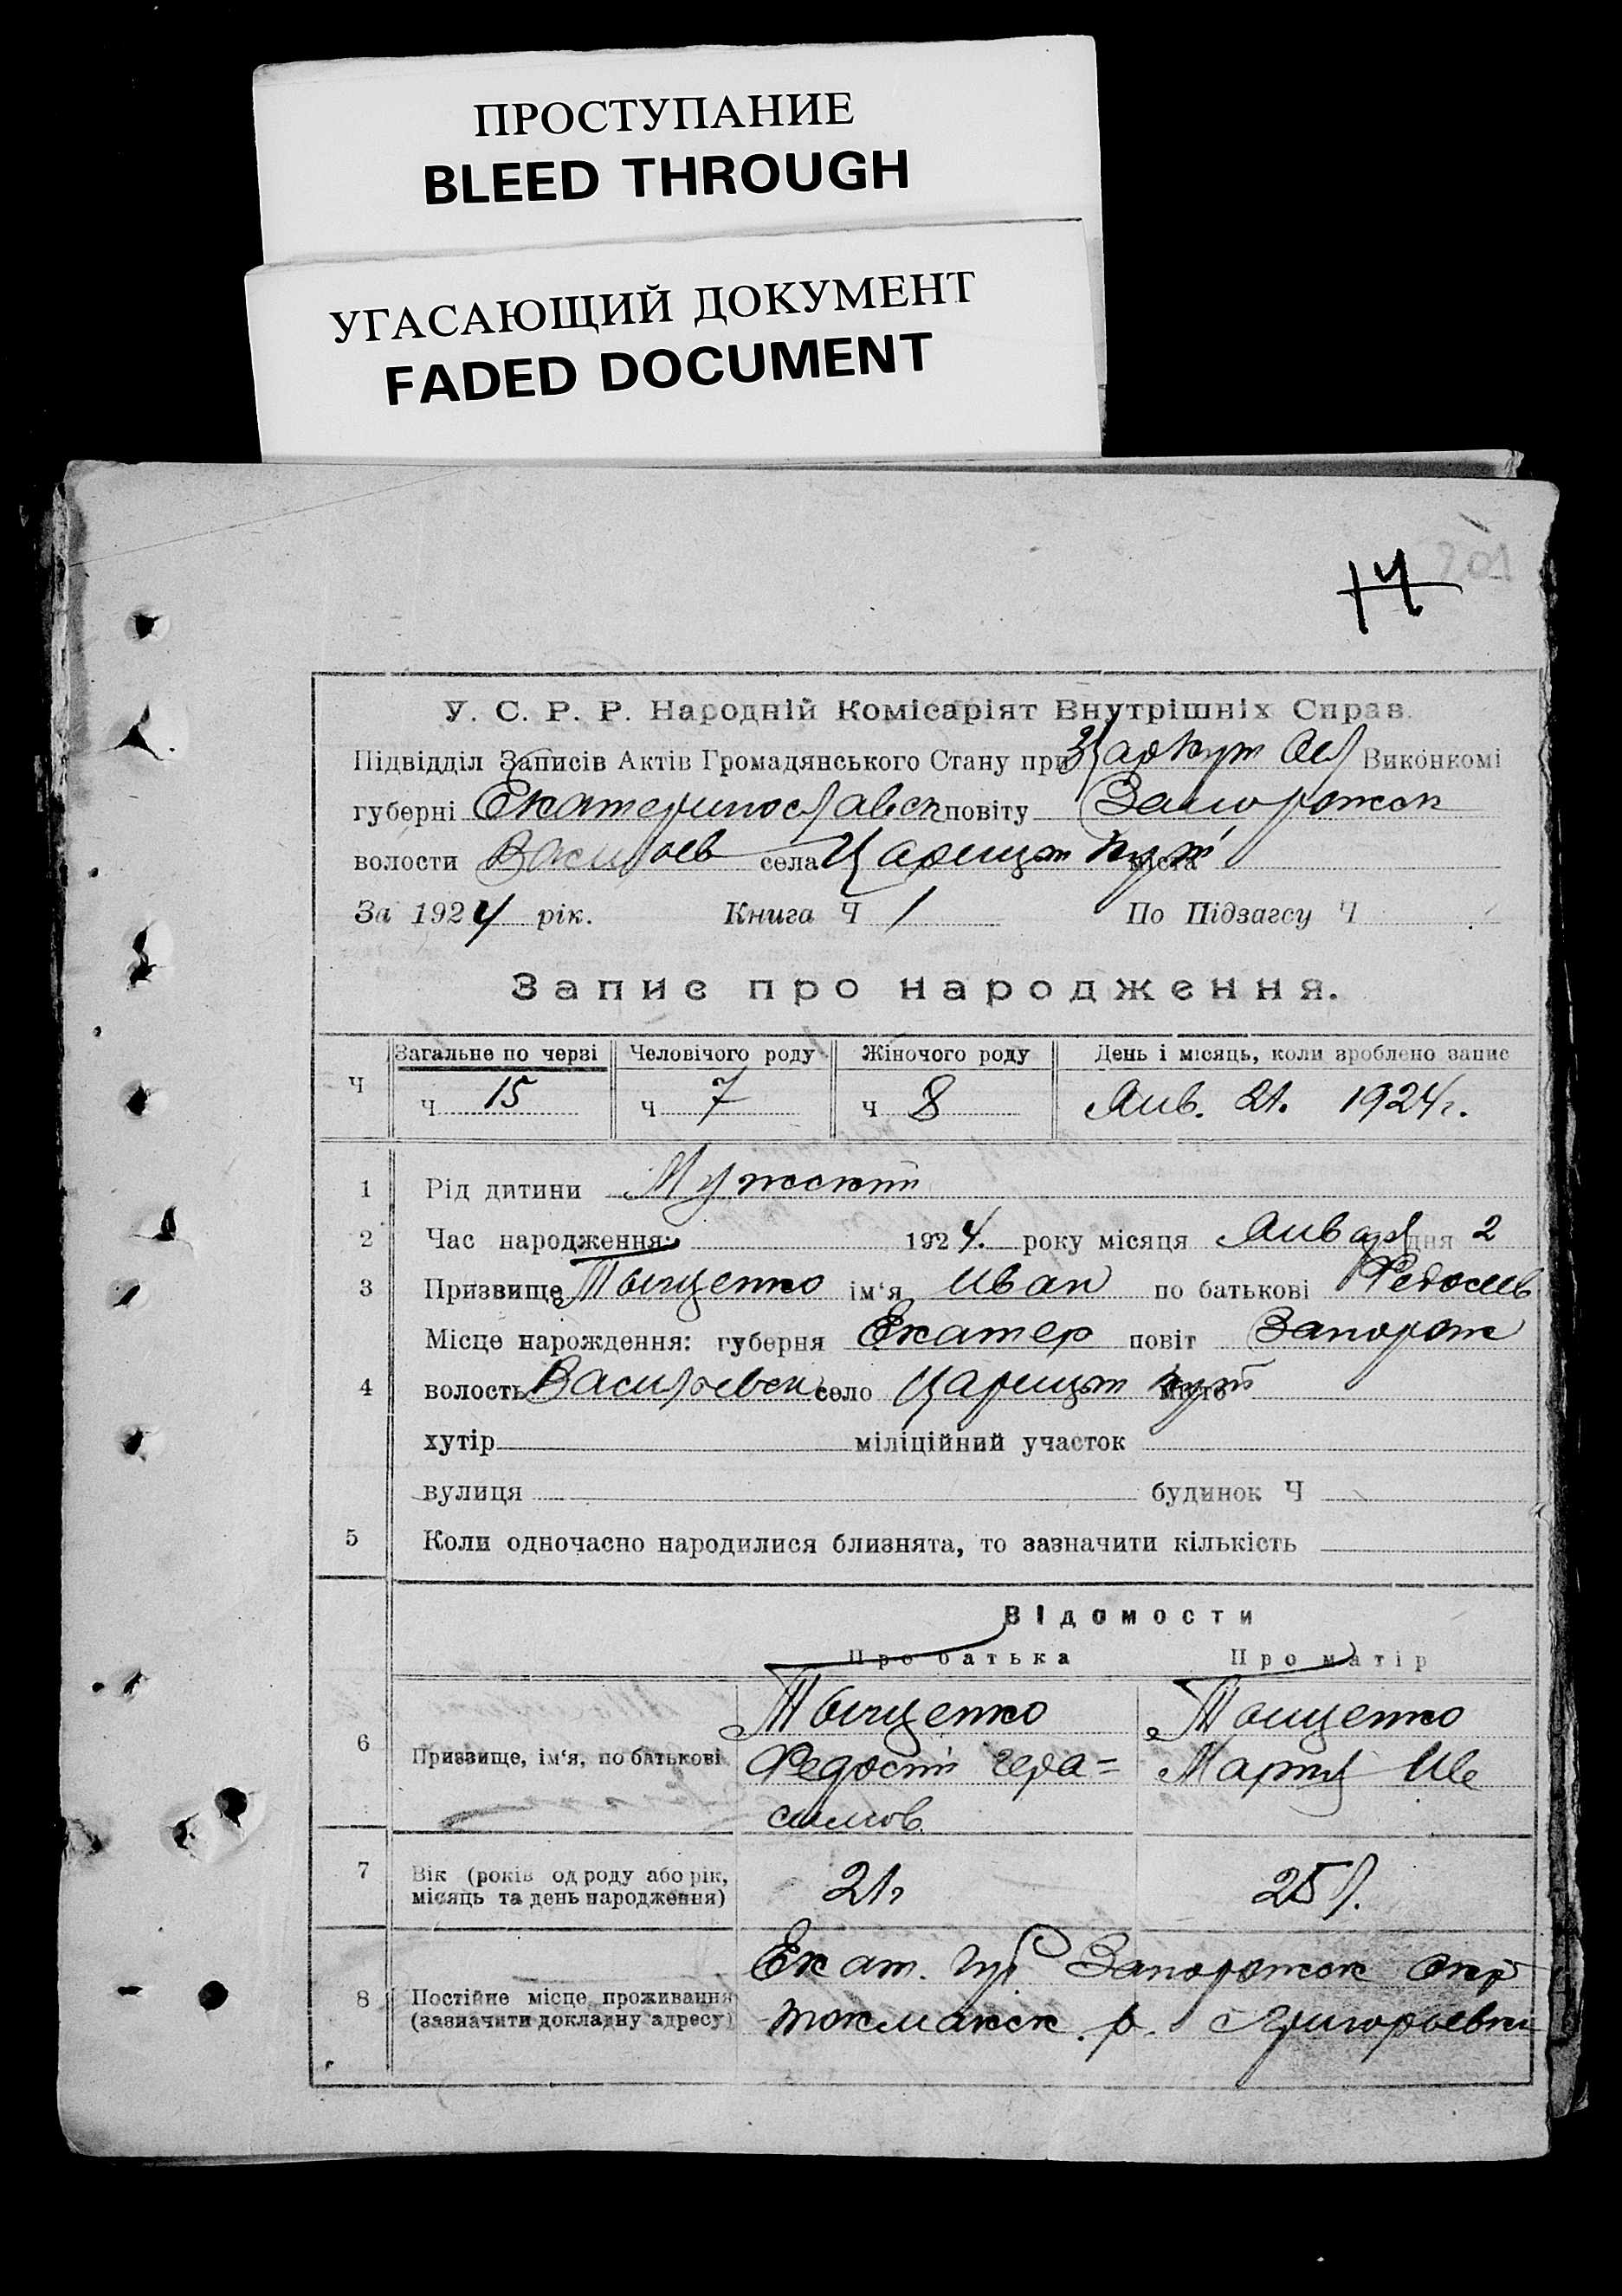 ПРОСТУПАНИЕ
BLEED THROUGH
УГАСАЮЩИЙ ДОКУМЕНТ
FADED DOCUMENT
201
14
У. С. Р. Р. Народній Комісаріят Внутрішніх Справ.
Підвідділ Записів Актів Громадянського Стану при Царкут Виконкомі
губерні Екатеринославск повіту Запорожск
волости Васильев села Царицын Кут міста
За 1924 рік. Книга Ч 1 По Підзагсу Ч
Запис про народження.
Загальне по черзі Человічого роду Жіночого роду День і місяць, коли зроблено запис
Ч Ч 15 Ч 7 Ч 8 Янв. 21. 1924 г.
1 Рід дитини Мужской
2 Час народження: 1924. року місяця Января дня 2
3 Призвище Тыщенко ім‘я Иван по батькові Федосеев
Місце народження: губерня Екатер повіт Запорож
4 волость Васильевск село Царицын Кут місто
хутір міліційний участок
вулиця будинок Ч
5 Коли одночасно народилися близнята, то зазначити кількість
Відомости
Про батька Про матір
Тыщенко Тыщенко
6 Призвище, ім‘я, по батькові Федосий Гера= Мария Ив
симов
7 Вік (років од роду або рік,
місяць та день народження) 21 г 25 л.
Екат. губ Запорожск окр
8 Постійне місце проживання
(зазначити докладну адресу) Токмакск. р. с Григорьевки